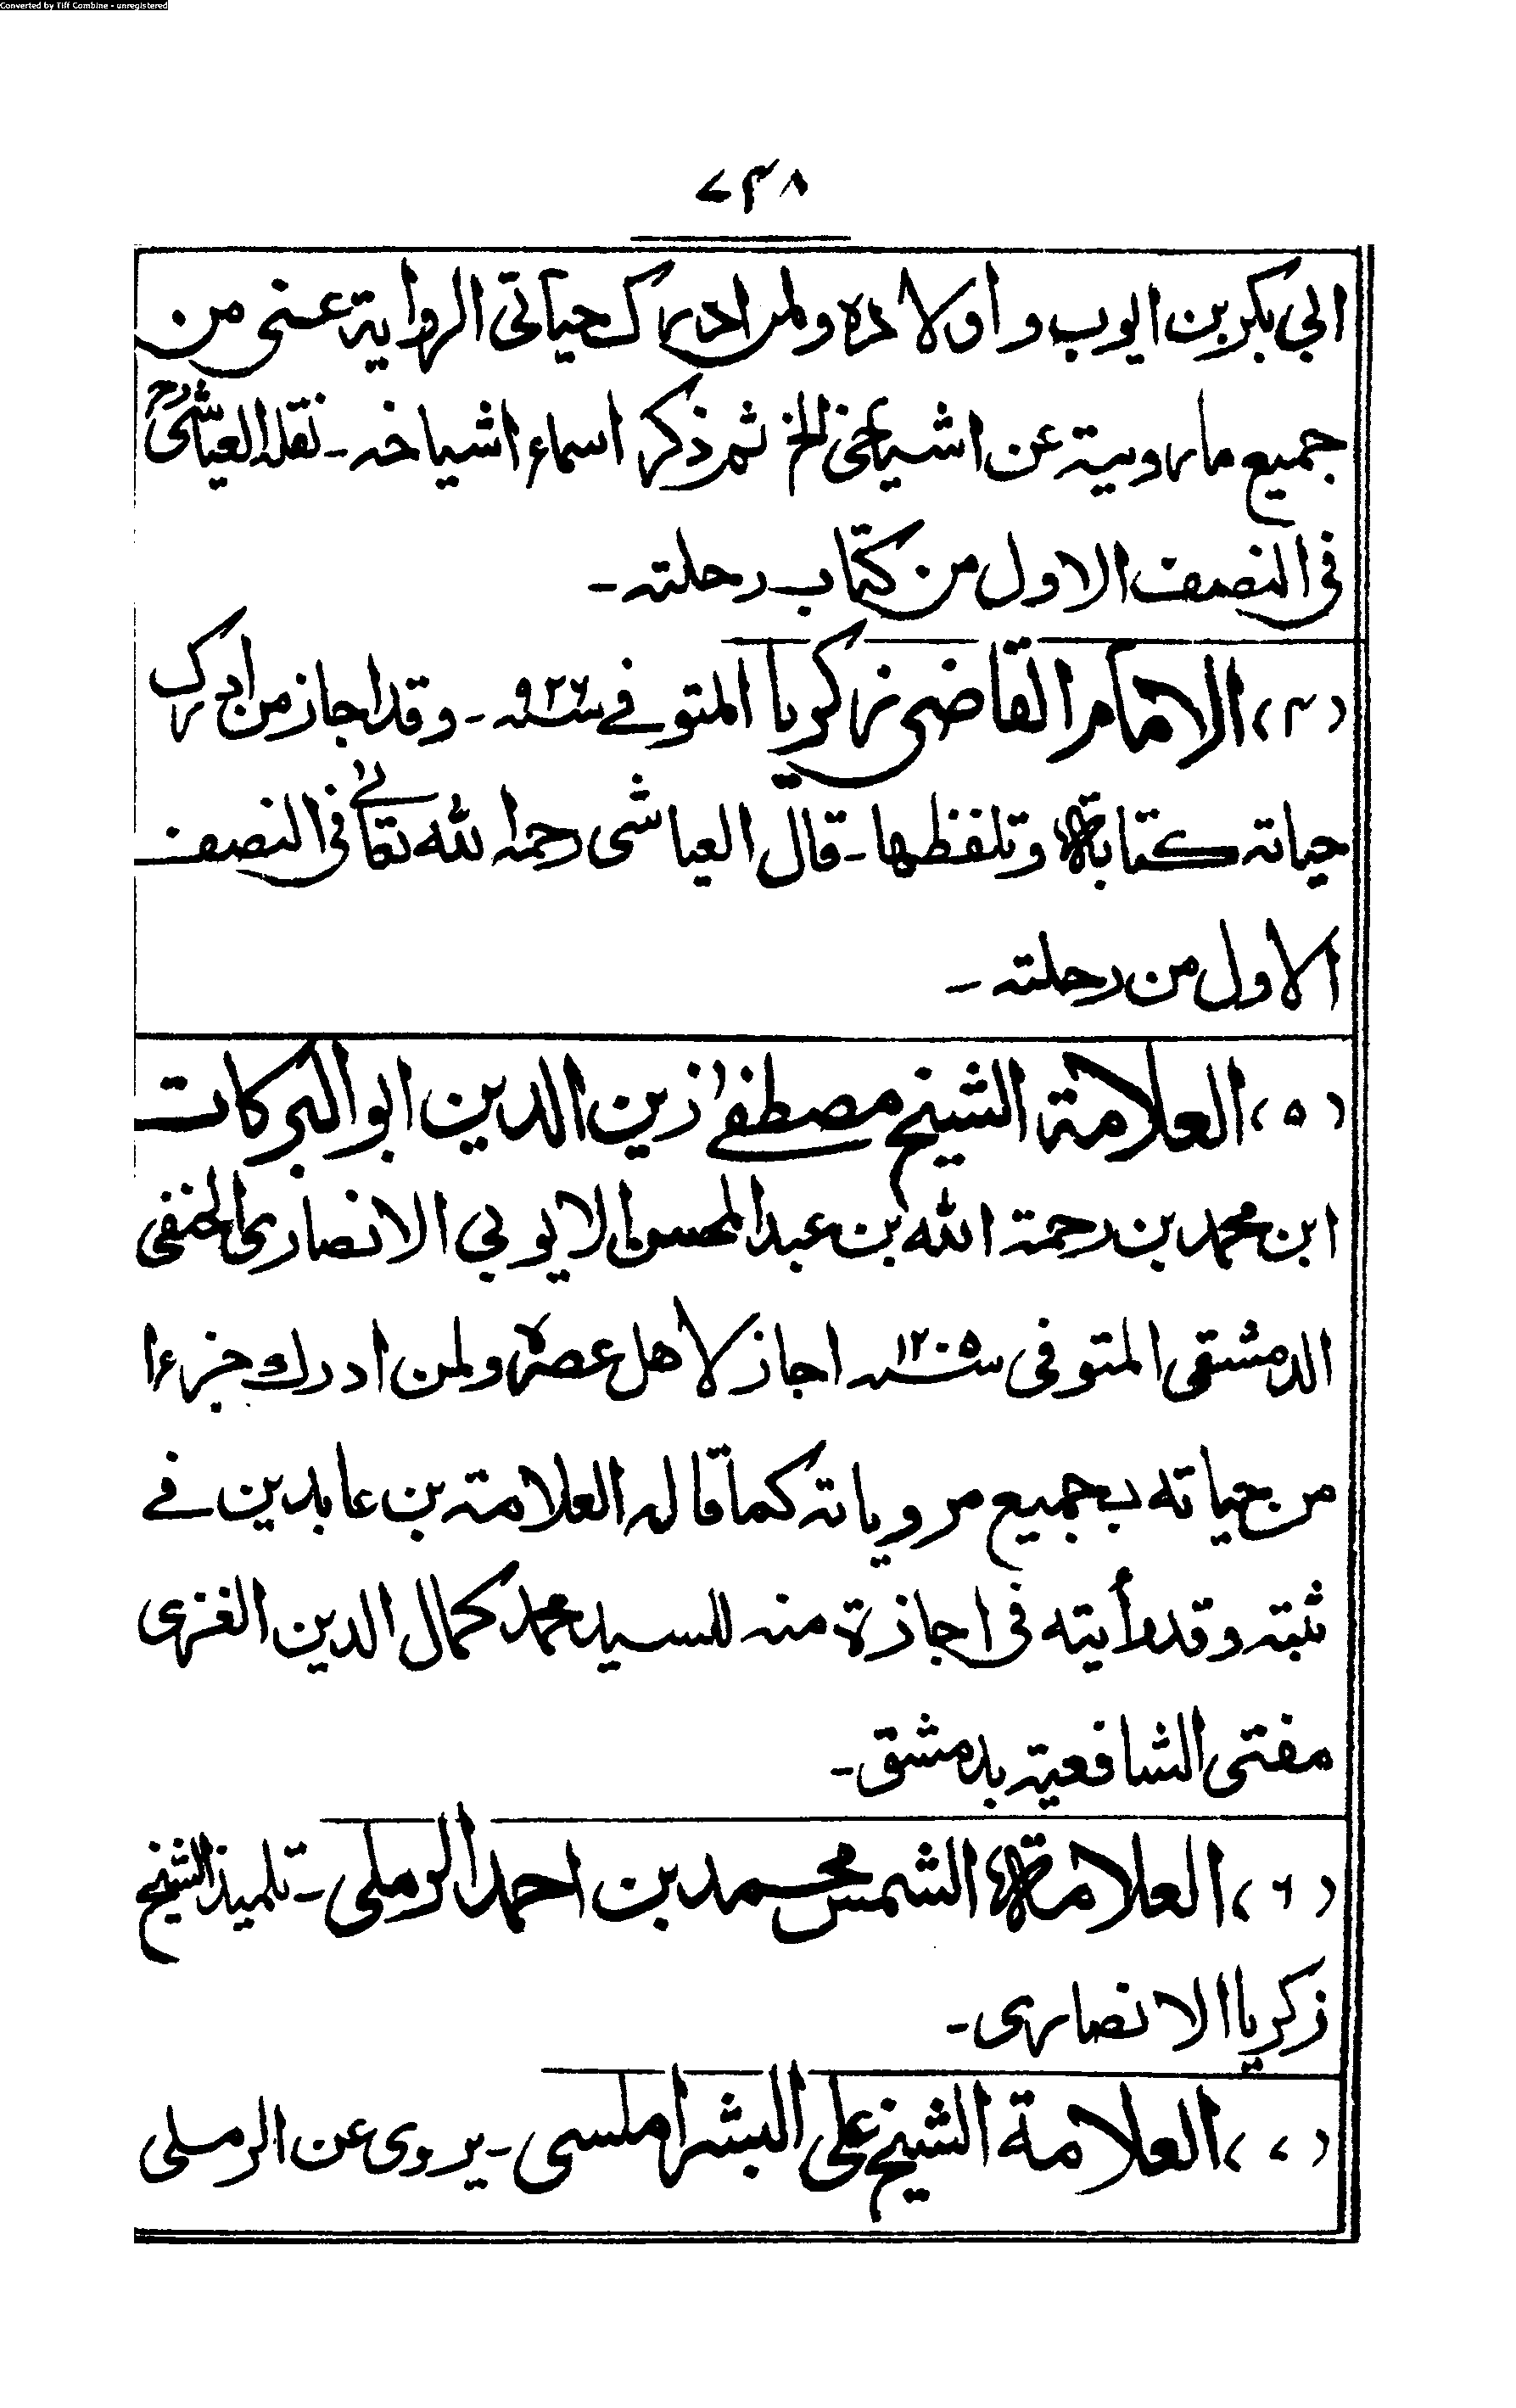 Converted by Tiff Combine - unregistered
۷۳۸
ابی بکر بن ایوب و اولادہ ولمن ادرک حیاتی الروایة عنی من
جمیع ما رویتہ عن اشیاخی الخ ثم ذکر اسماء اشیاخہ ـ نقلہ العیاشیؒ
فی النصف الاول من کتاب رحلتہ ـ
(۴) الامام القاضی زکریا المتوفی سنہ ۹۲۶ ـ وقد اجاز من ادرک
حیاتہ کتابة وتلفظها ـ قال العیاشی رحمہ اللہ تعالیٰ فی النصف
الاول من رحلتہ ـ
(۵) العلامة الشیخ مصطفیٰ زین الدین ابو البرکات
ابن محمد بن رحمة اللہ بن عبد المحسن الایوبی الانصاری الحنفی
الدمشقی المتوفی سنہ ۱۲۰۵ اجاز لاهل عصرہ ولمن ادرك جزءا
من حیاته بجمیع مرویاتہ کما قالہ العلامة بن عابدین فی
ثبتہ وقد رأیته فی اجازة منہ للسید محمد کمال الدین الغزی
مفتی الشافعیة بدمشق ـ
(۶) العلامة الشمس محمد بن احمد الرملی ـ تلمیذ الشیخ
زکریا الانصاری ـ
(۷) العلامة الشیخ علی الشبراملسی ـ یروی عن الرملی